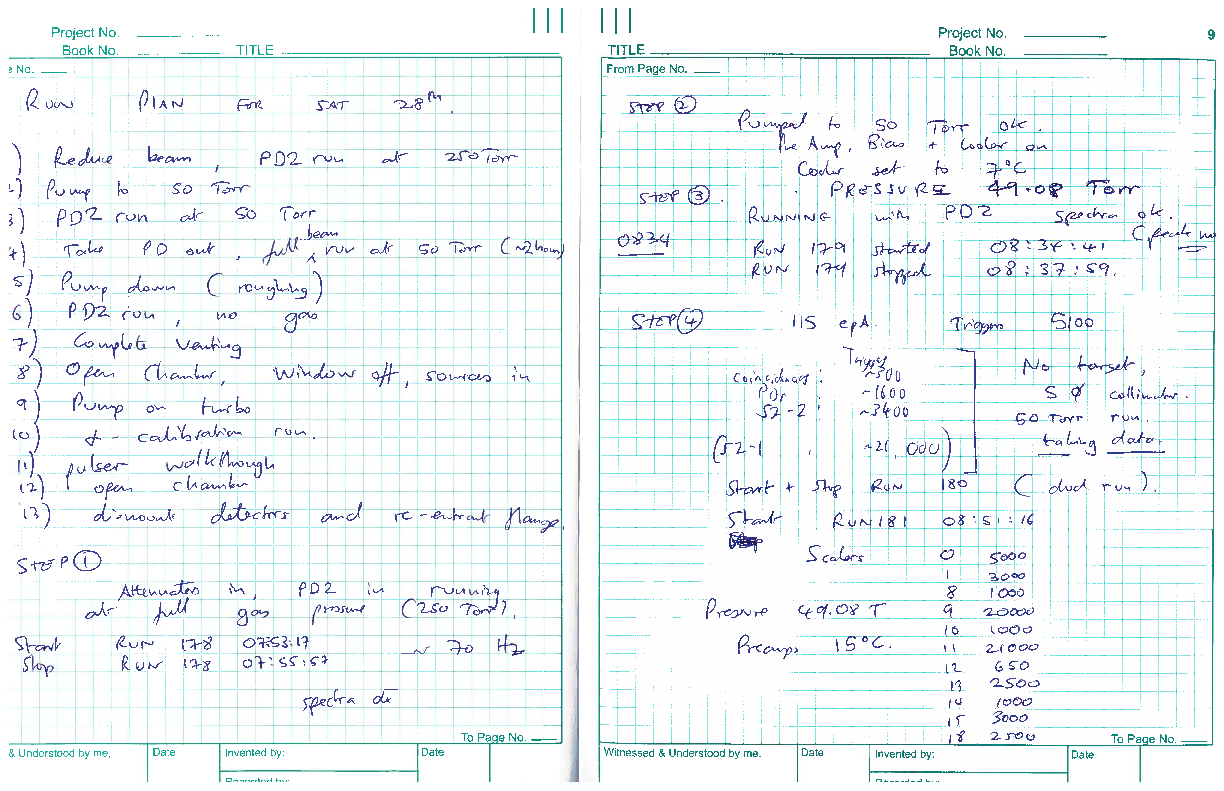 Project No.
Book No. TITLE
e No.
RUN PLAN FOR SAT 28th.
) Reduce beam, PD2 run at 250 Torr
) Pump to 50 Torr
3) PD2 run at 50 Torr
4) Take PD out, full beam run at 50 Torr (~2 hours)
5) Pump down (roughing)
6) PD2 run, no gas
7) Complete venting
8) Open Chamber, Window off, sources in
9) Pump on turbo
10) α - calibration run.
11) pulser walkthough
12) open chamber
13) dismount detectors and re-entrant flange.
STEP 1
Attenuators in, PD2 in running
at full gas pressure (250 Torr).
Start RUN 178 07:53:17 ~ 70 Hz
Stop RUN 178 07:55:57
spectra ok
To Page No.
& Understood by me, Date Invented by: Date
Recorded by:
Project No. 9
TITLE Book No.
From Page No.
STEP 2
Pumped to 50 Torr ok.
Pre Amp, Bias + Cooler on
Cooler set to 7°C
PRESSURE 49.08 Torr
STEP 3.
RUNNING with PD2 spectra ok.
0834 RUN 179 started 08:34:41
RUN 179 stopped 08:37:59.
STEP 4 115 epA. Triggers 5100
Triggers
coincidences: ~500
~1600
S2-2: ~3400
(S2-1 ~21,000)
No target,
5 Ø collimator.
50 Torr run.
taking data.
Start + Stop RUN 180 (dud run).
Start RUN 181 08:51:16
Scalers 0 5000
1 3000
8 1000
Pressure 49.08 T 9 20000
10 1000
Preamps 15°C. 11 21000
12 650
13 2500
14 1000
15 3000
18 2500
To Page No.
Witnessed & Understood by me. Date Invented by: Date